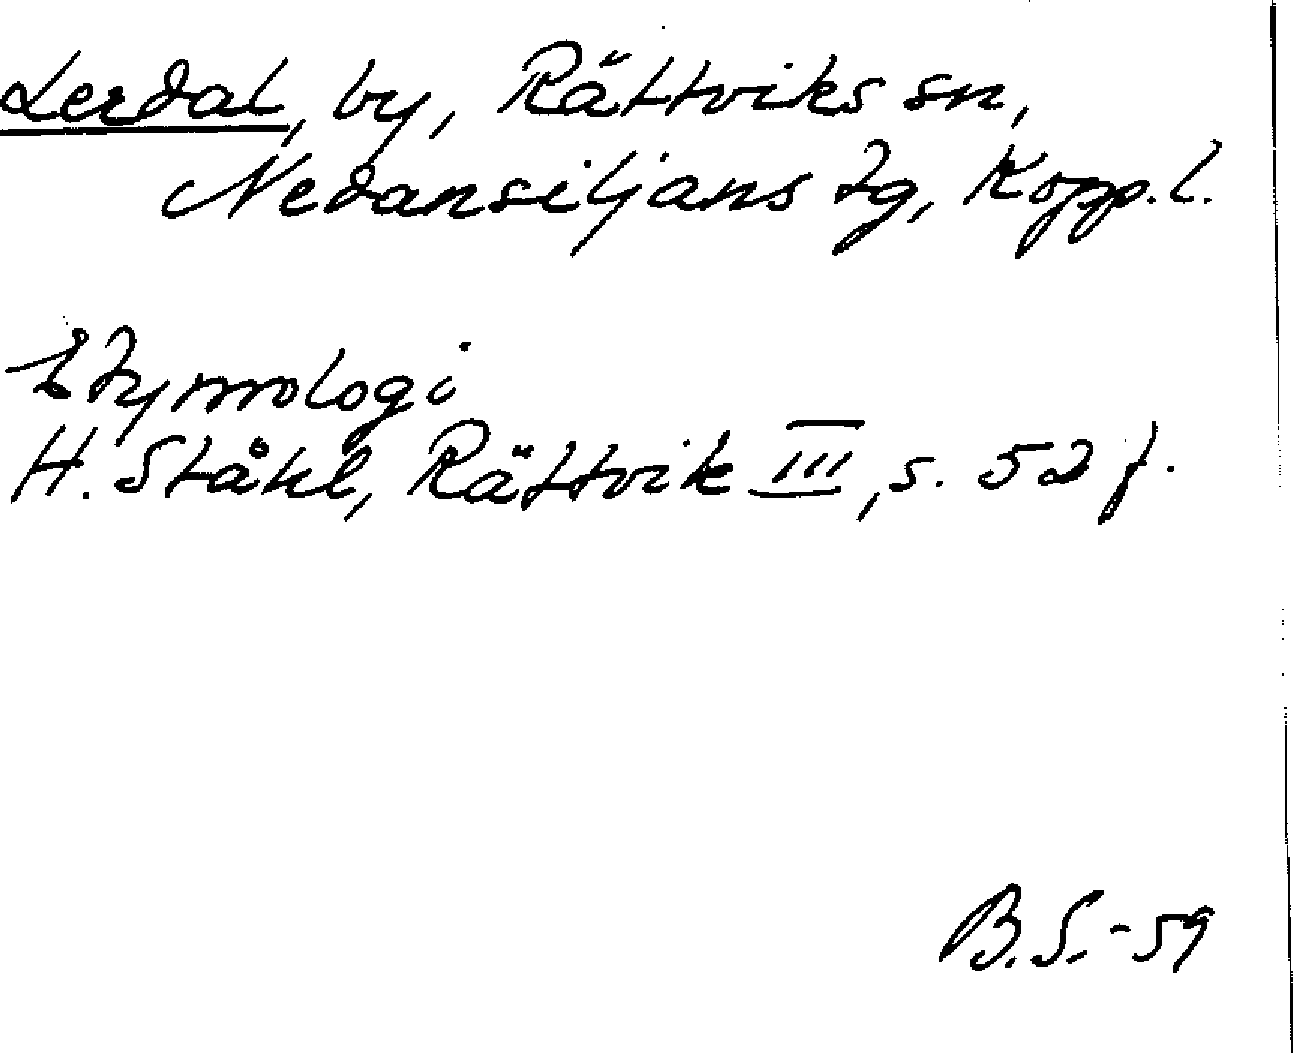 Lerdal, by, Rättviks sn,
Nedansiljans tg, Kopp.l.
Etymologi
H. Ståhl, Rättvik III, s. 52 f.
B.S.-59